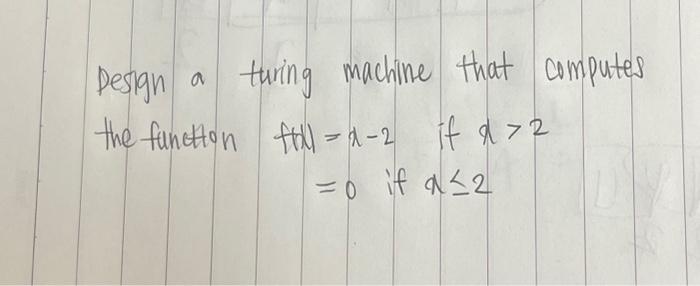 Design a turing machine that computes
the function f(x) = x - 2 if x > 2
= 0 if x ≤ 2